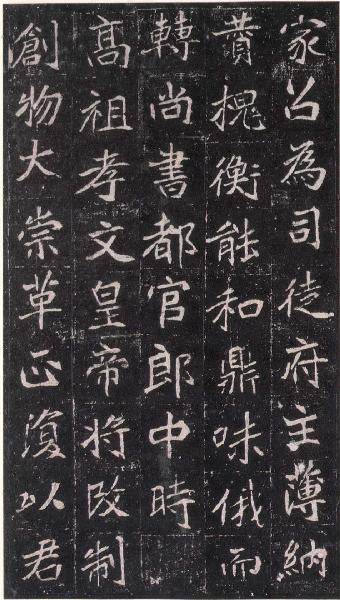 家召為司徒府主薄納
贊槐衡能和鼎味俄而
轉尚書都官郎中時
髙祖孝文皇帝將改制
創物大崇革正復以君